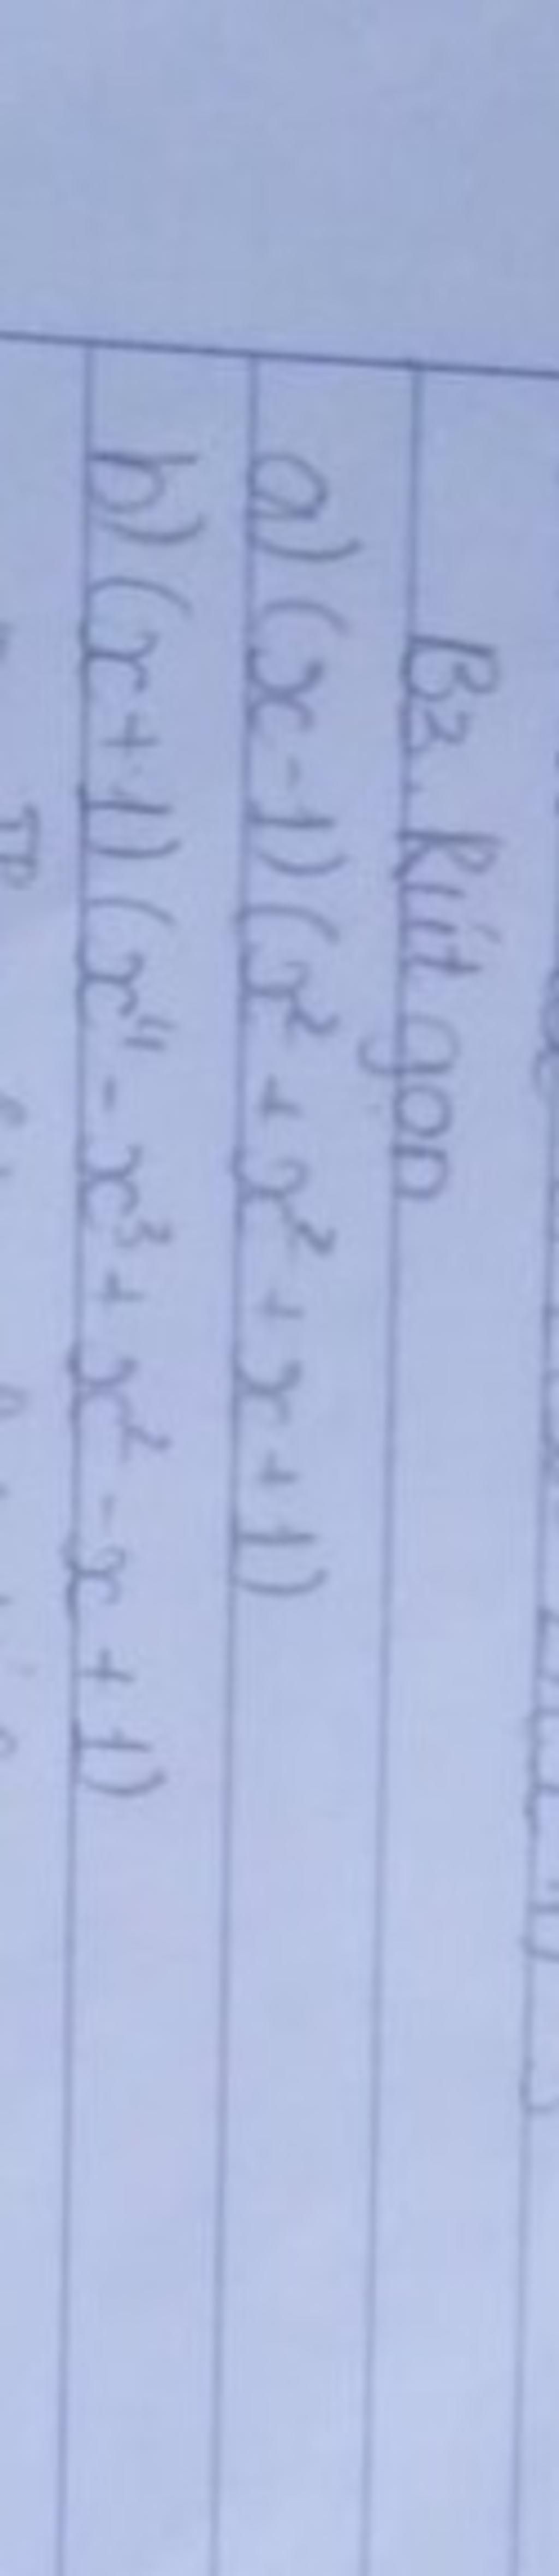 B3. Rút gọn
a) (x - 1) (x² + x² + x + 1)
b) (x + 1) (x⁴ - x³ + x² - x + 1)